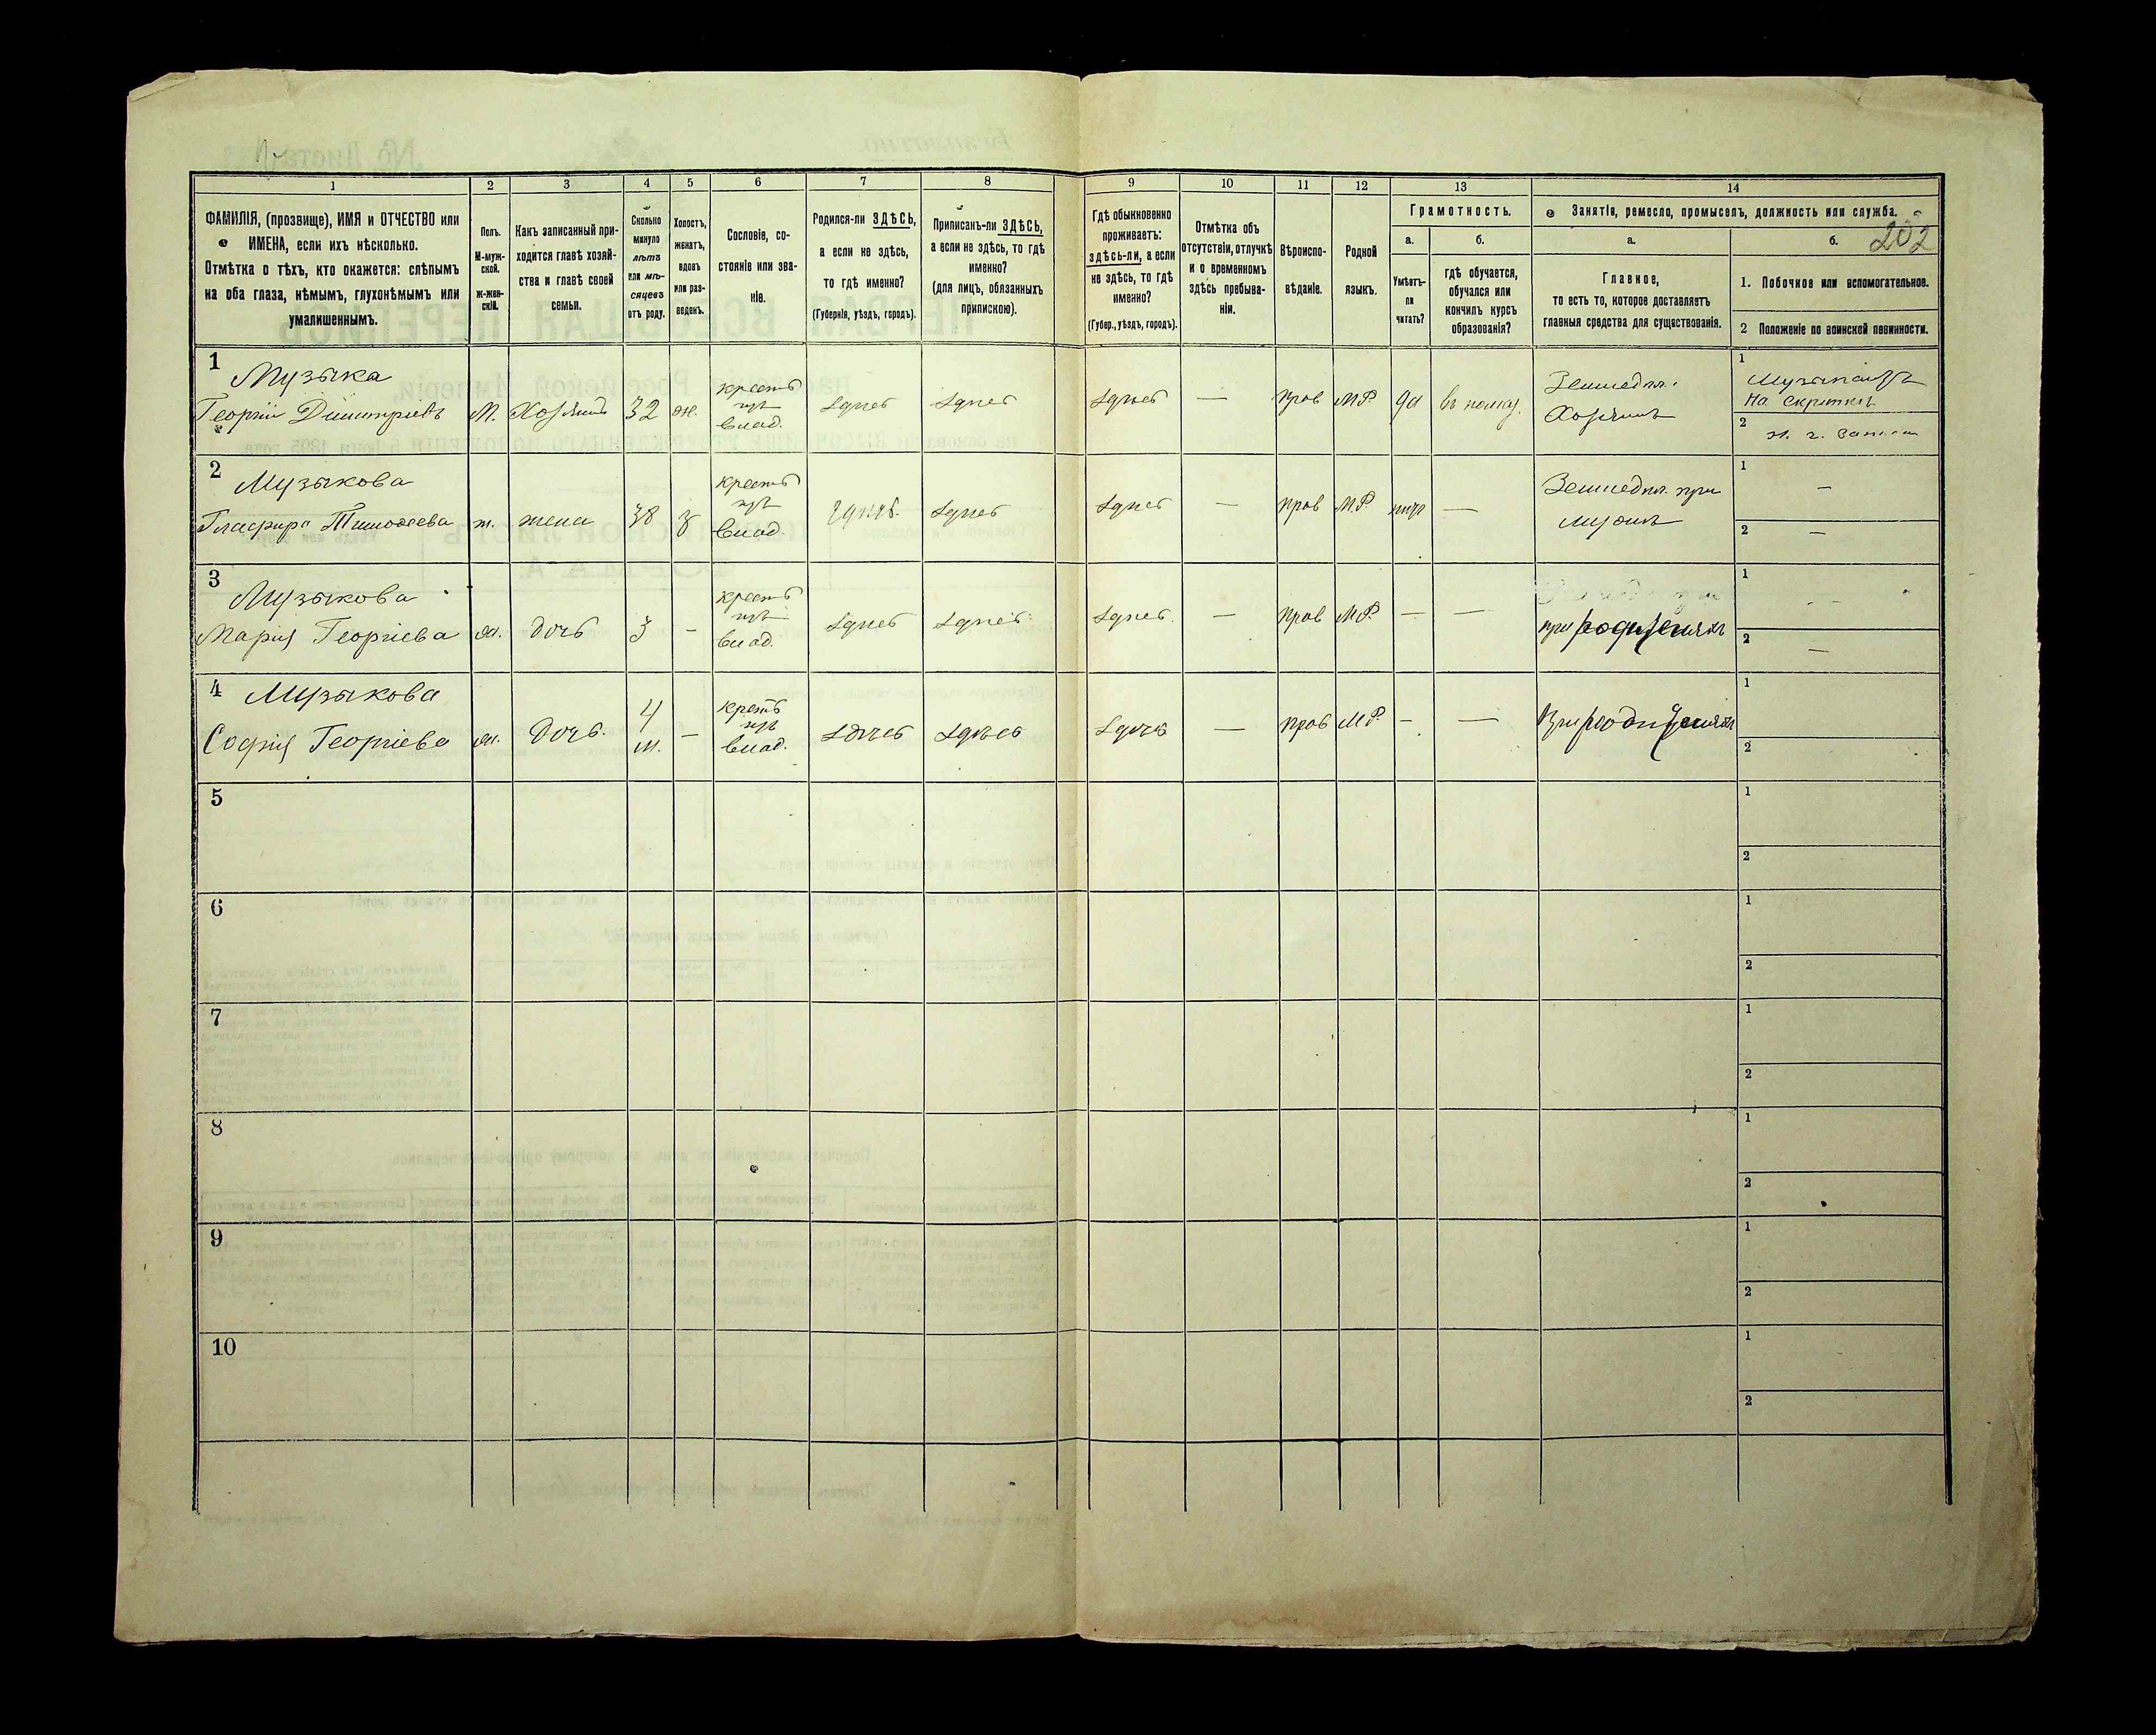 202
1 2 3 4 5 6 7 8 9 10 11 12 13 14
ФАМИЛІЯ, (прозвище), ИМЯ и ОТЧЕСТВО или
ИМЕНА, если ихъ нѣсколько.
Отмѣтка о тѣхъ, кто окажется: слѣпымъ
на оба глаза, нѣмымъ, глухонѣмымъ или
умалишеннымъ.
Полъ.
М-муж-
ской.
ж-жен-
скій.
Какъ записанный при-
ходится главѣ хозяй-
ства и главѣ своей
семьи.
Сколько
минуло
лѣтъ
или мѣ-
сяцевъ
отъ роду.
Холостъ,
женатъ,
вдовъ
или раз-
веденъ.
Сословіе, со-
стояніе или зва-
ніе.
Родился-ли ЗДѢСЬ,
а если не здѣсь,
то гдѣ именно?
(Губернія, уѣздъ, городъ).
Приписанъ-ли ЗДѢСЬ,
а если не здѣсь, то гдѣ
именно?
(для лицъ, обязанныхъ
припискою).
Гдѣ обыкновенно
проживаетъ:
здѣсь-ли, а если
не здѣсь, то гдѣ
именно?
(Губер., уѣздъ, городъ).
Отмѣтка объ
отсутствіи, отлучкѣ
и о временномъ
здѣсь пребыва-
ніи.
Вѣроиспо-
вѣданіе.
Родной
языкъ.
Грамотность.
а.
Умѣетъ-
ли
читать?
б.
гдѣ обучается,
обучался или
кончилъ курсъ
образованія?
Занятіе, ремесло, промыселъ, должность или служба.
а.
Главное,
то есть то, которое доставляетъ
главныя средства для существованія.
б.
1. Побочное или вспомогательное.
2 Положеніе по воинской повинности.
1 Музыка
Георгій Димитріевъ М. Хозяинъ 32 ж. крестъ влад. здѣсь здѣсь здѣсь — прав М.Р. да Земледѣл. Хозяинъ
1 Музыкантъ
на скрипкѣ
2
2 Музыкова
Гласира Тимофеева ж. жена 38 з крестъ влад. здѣсь здѣсь здѣсь — прав М.Р. — Земледѣл. при мужѣ
1 —
2 —
3 Музыкова
Марія Георгіева ж. дочь 3 — крестъ влад. здѣсь здѣсь здѣсь — прав М.Р. — — при родителяхъ
1 —
2 —
4 Музыкова
Софія Георгіева ж. дочь. 4 м. — крестъ влад. здѣсь здѣсь здѣсь — прав М.Р. — — При родителяхъ
1
2
5 1
2
6 1
2
7 1
2
8 1
2
9 1
2
10 1
2